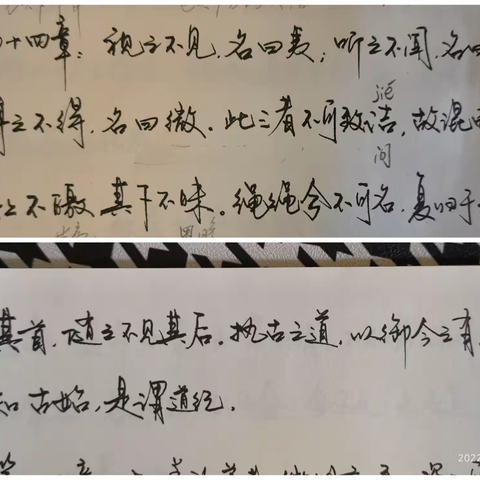 十四章：视之不见，名曰夷；听之不闻，名曰
之不得，名曰微。此三者不可致诘，故混而
jié
问
上不皦，其下不昧。绳绳兮不可名，复归于
其首，随之不见其后。执古之道，以御今之有
知古始，是谓道纪。
2022